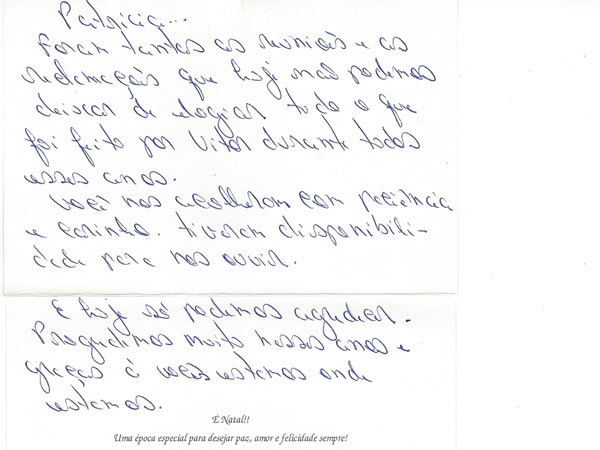 Patrícia...
Foram tantas as reuniões e as
reclamações que hoje não podemos
deixar de elogiar tudo o que
foi feito por Vitor durante todos
esses anos.
Vocês nos acolheram com paciência
e carinho. tiveram disponibili-
dade para nos ouvir.
E hoje só podemos agradecer.
Progredimos muito nesses anos e
graças à vocês estamos onde
estamos.
É Natal!!
Uma época especial para desejar paz, amor e felicidade sempre!